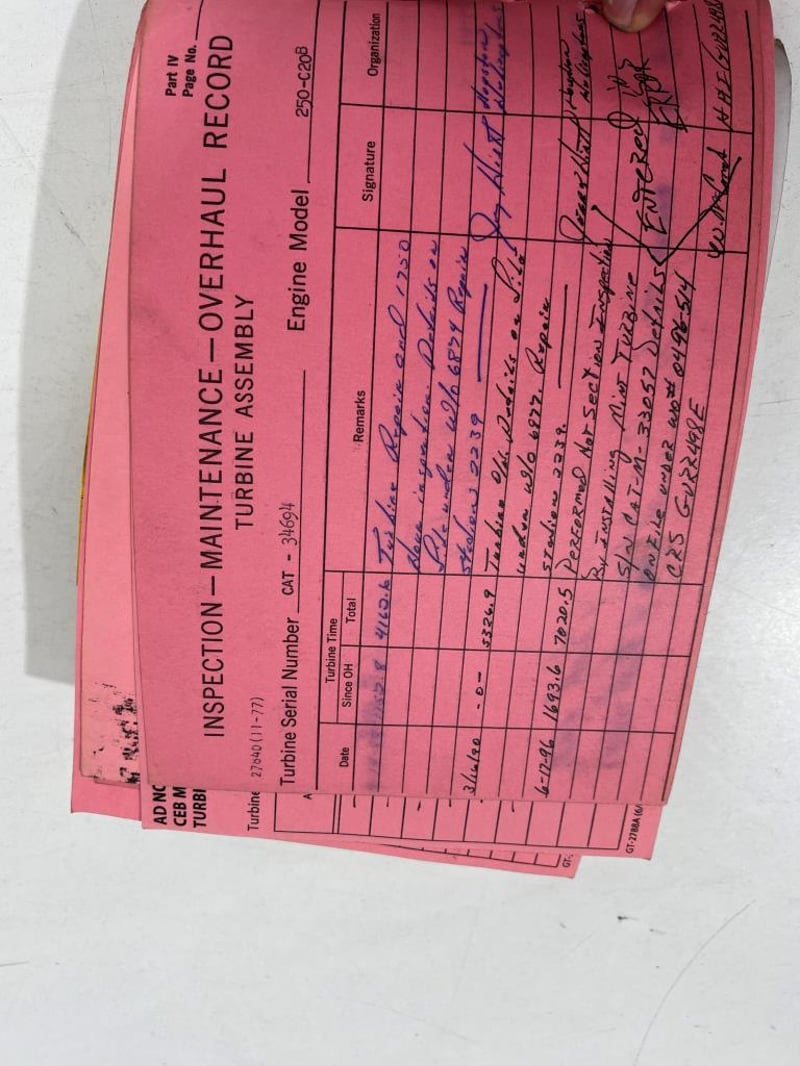 Part IV
Page No.
INSPECTION — MAINTENANCE — OVERHAUL RECORD
TURBINE ASSEMBLY
27640 (11-77)
Turbine Serial Number CAT - 34694 Engine Model 250-C20B
Date
Turbine Time
Since OH
Total
Remarks
Signature
Organization
4162.6 Turbine Repair and 1750
Hour inspection. Details on
File under W/o 6874 Repair
station 2239
3/16/90 -0- 5326.9 Turbine O/H. Details on File
under W/o 6977. Repair
station 2239.
6-17-96 1693.6 7020.5 PERFORMED HOT SECTION INSPECTION
BY INSTALLING MINT TURBINE
S/N CAT-M-33057 DETAILS
ON FILE UNDER WO# 0496-514
CRS GUZZ498E
ENTERED
IN
ERROR
AD NO
CEB M
TURBI
Turbine
GT-2788A (6/
GT-